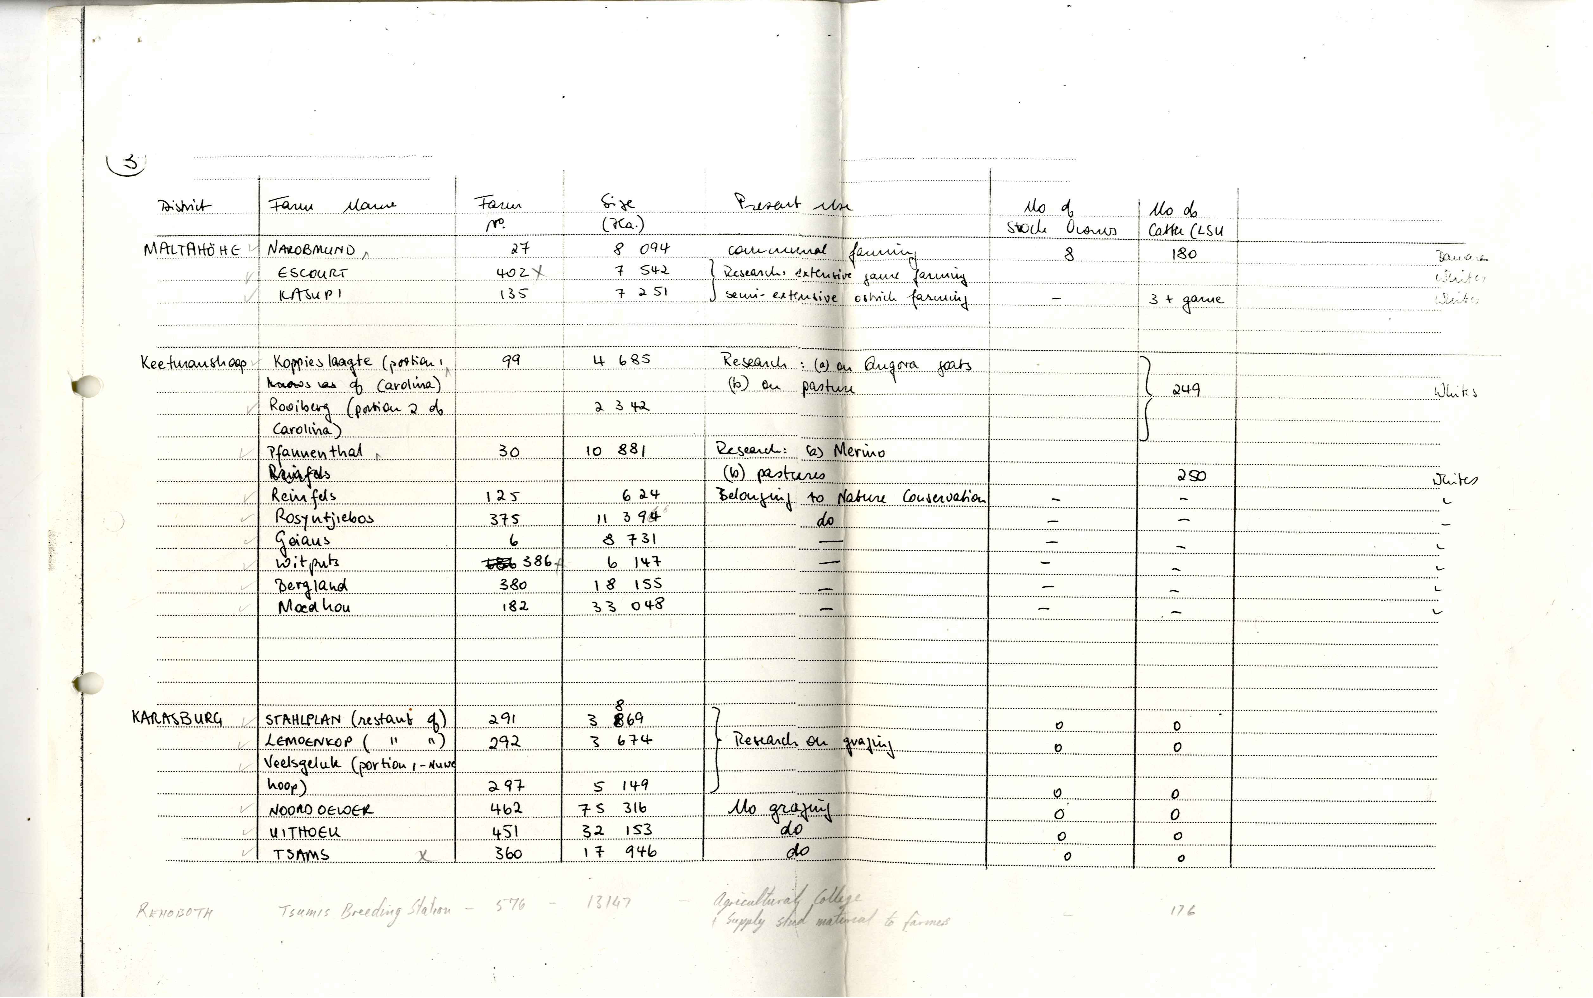 3
District Farm Name Farm Size Present Use No of No of
No. (Ha.) Stock Owners Cattle (LSU
MALTAHÖHE NAROBMUND 27 8 094 communal farming 8 180
ESCOURT 402 X 7 542 Research: extensive game farming Whites
KASUPI 135 7 251 semi-extensive ostrich farming - 3 + game Whites
Keetmanshoop Koppieslaagte (portion 1 99 4 685 Research : (a) on Angora goats
of Carolina) (b) on pasture 249 Whites
Rooiberg (portion 2 of 2 342
Carolina)
Pfannenthal 30 10 881 Research: (a) Merino
Reinfels (b) pastures 250 Whites
Reinfels 125 624 Belonging to Nature Conservation - - "
Rosyntjiebos 375 11 394 do - - "
Goians 6 8 731 — - - "
Witputs 386 6 147 — - - "
Bergland 380 18 155 — - - "
Moedhou 182 33 048 — - - "
8
KARASBURG STAHLPLAN (restant of) 291 3 869 0 0
LEMOENKOP ( " ") 292 3 674 Research on grazing 0 0
Veelsgeluk (portion 1 - Nuwe
hoop) 297 5 149 0 0
NOORDOEWER 462 75 316 No grazing 0 0
UITHOEK 451 32 153 do 0 0
TSAMS X 360 17 946 do 0 0
REHOBOTH Tsumis Breeding Station - 576 - 13147 - Agricultural College - 176
+ Supply stud material to farmers